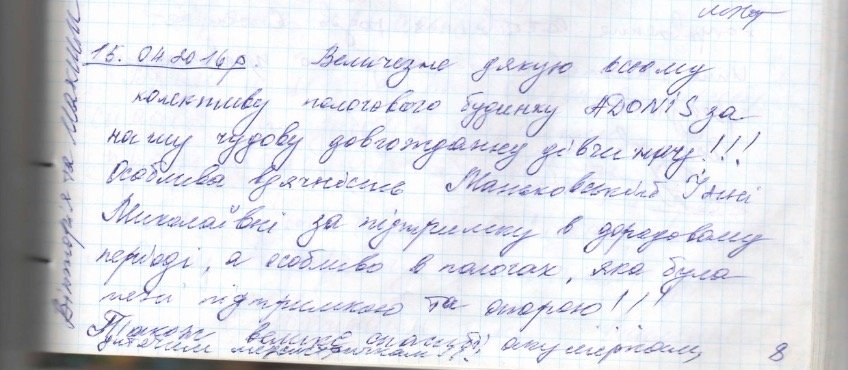 15.04.2016р. Величезне дякую всьому
колективу пологового будинку ADONIS за
нашу чудову довгождану дівчинку!!!
Особлива вдячність Маньковській Інні
Миколаївні за підтримку в дородовому
періоді, а особливо в пологах, яка була
мені підтримкою та опорою!!!
Також велике спасибі акушеркам,
дитячим медсестричкам!!!
8
Вікторія та Максим